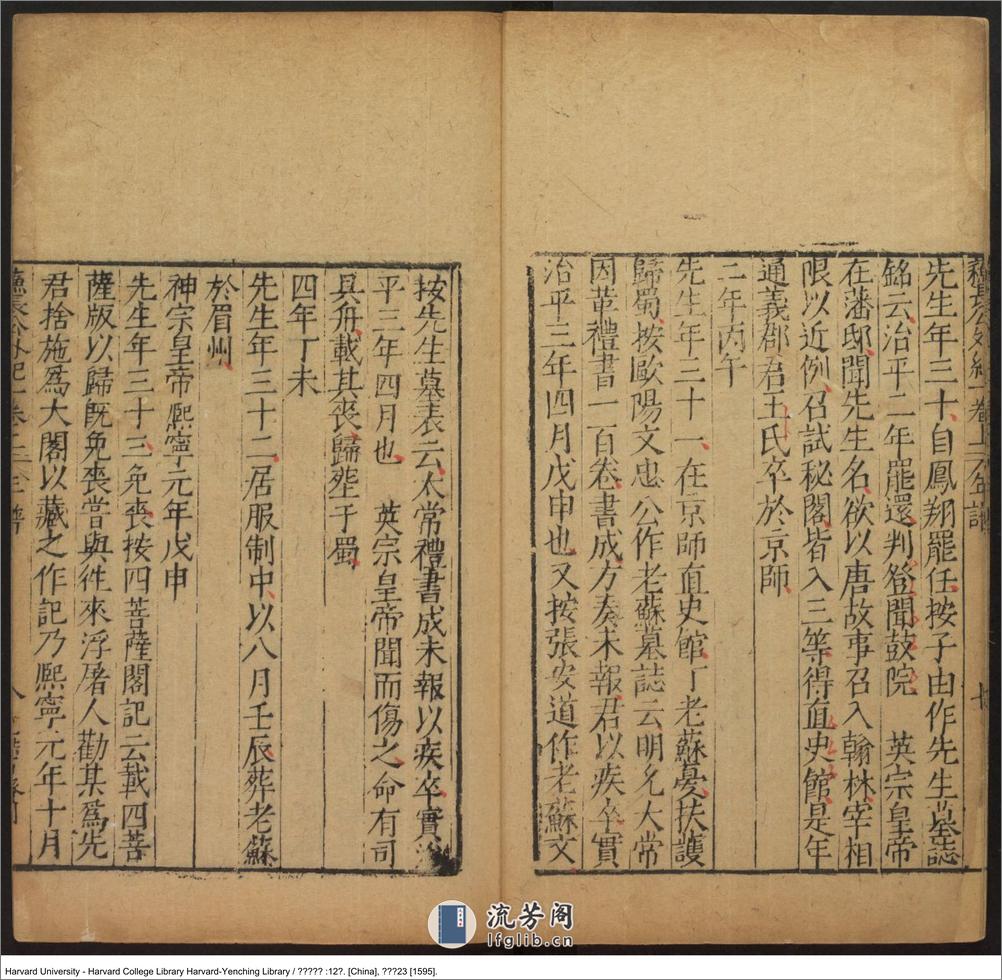 先生年三十自鳳翔罷任按子由作先生墓誌
銘云治平二年罷還判登聞鼓院　英宗皇帝
在藩邸聞先生名欲以唐故事召入翰林宰相
限以近例召試秘閣皆入三等得直史館是年
通義郡君王氏卒於京師
二年丙午
先生年三十一在京師直史館丁老蘇憂扶護
歸蜀按歐陽文忠公作老蘇墓誌云明允太常
因革禮書一百卷書成方奏未報君以疾卒實
治平三年四月戊申也又按張安道作老蘇文
按先生墓表云太常禮書成未報以疾卒實治
平三年四月也　英宗皇帝聞而傷之命有司
具舟載其喪歸塟于蜀
四年丁未
先生年三十二居服制中以八月壬辰葬老蘇
於眉州
神宗皇帝熈寧元年戊申
先生年三十三免喪按四菩薩閣記云載四菩
薩版以歸既免喪嘗與徃來浮屠人勸某爲先
君捨施爲大閣以藏之作記乃熈寧元年十月
流芳阁
lfglib.cn
Harvard University - Harvard College Library Harvard-Yenching Library / ????? :12?. [China], ???23 [1595].